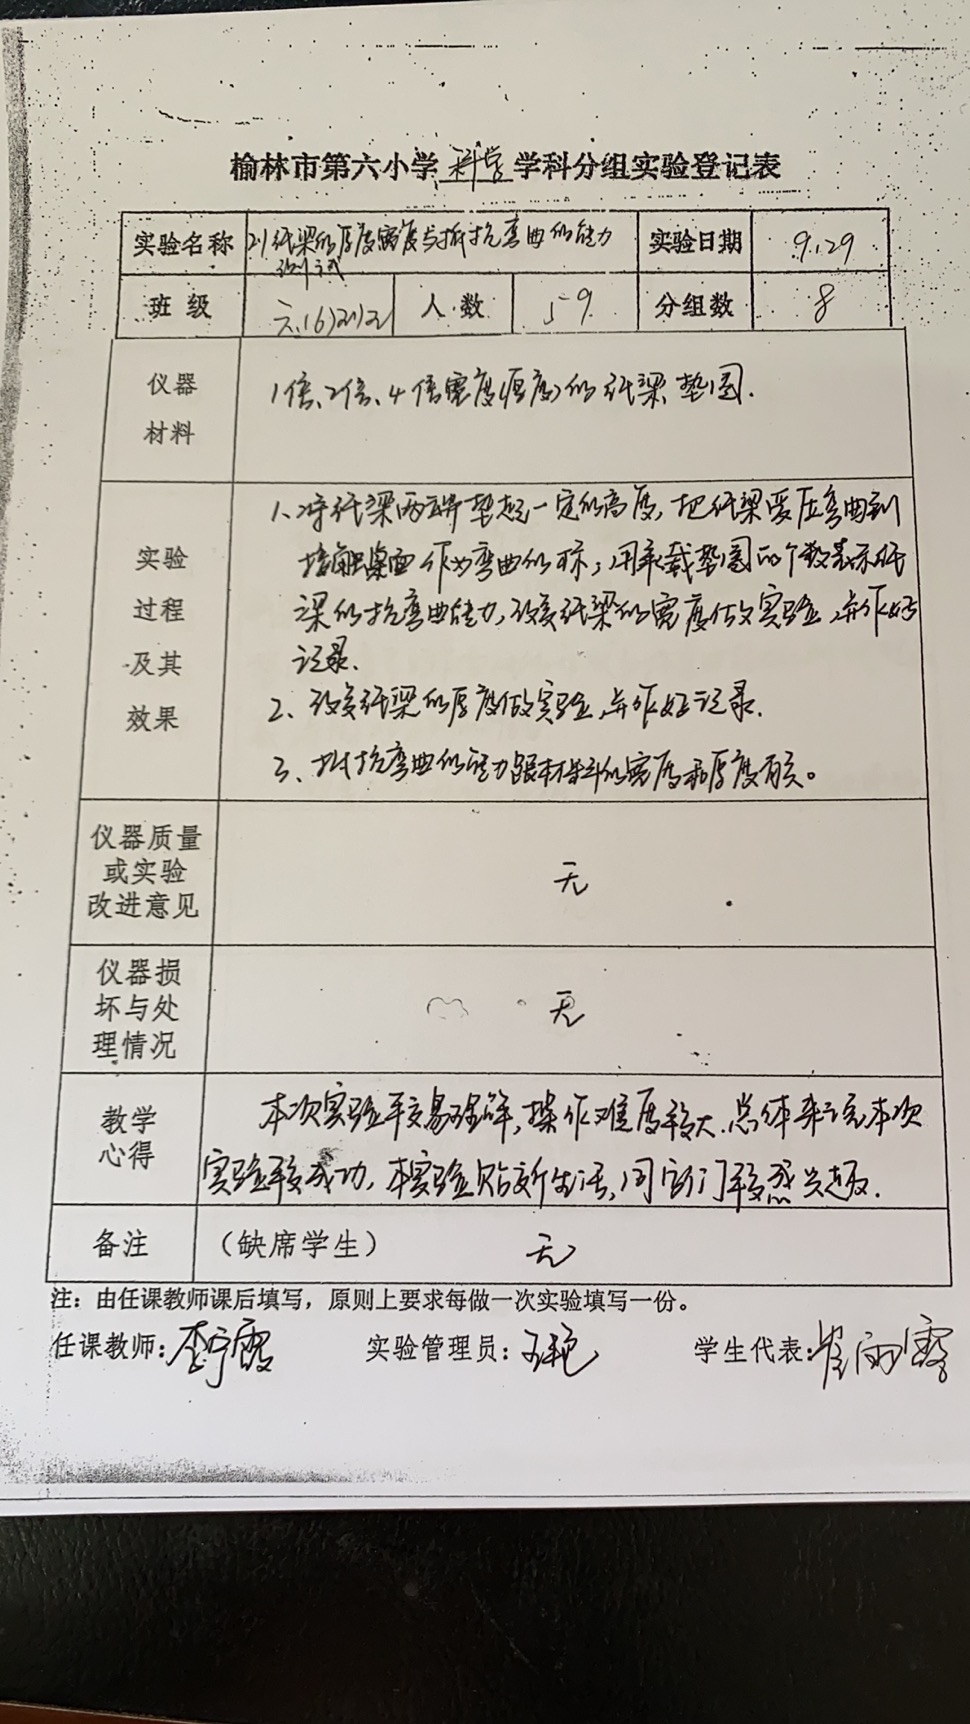 榆林市第六小学 科学 学科分组实验登记表
实验名称 纸梁的厚度宽度与抵抗弯曲的能力 实验日期 9.29
测试
班 级 六.(6) 人 数 59 分组数 8
仪器
材料
1倍、2倍、4倍宽度(厚度)的纸梁 垫圈.
实验
过程
及其
效果
1、将纸梁两端垫起一定的高度,把纸梁受压弯曲到
接触桌面作为弯曲的标,用承载垫圈的个数表示纸
梁的抗弯曲能力,改变纸梁的宽度做实验,并作好
记录.
2、改变纸梁的厚度做实验,并作好记录.
3、抵抗弯曲的能力跟材料的宽度和厚度有关。
仪器质量
或实验
改进意见
无
仪器损
坏与处
理情况
无
教学
心得
本次实验较易理解,操作难度较大.总体来说本次
实验较成功,本实验贴近生活,同学们较感兴趣.
备注 (缺席学生) 无
注:由任课教师课后填写,原则上要求每做一次实验填写一份。
任课教师:李宁霞 实验管理员:王艳 学生代表:崔雨馨